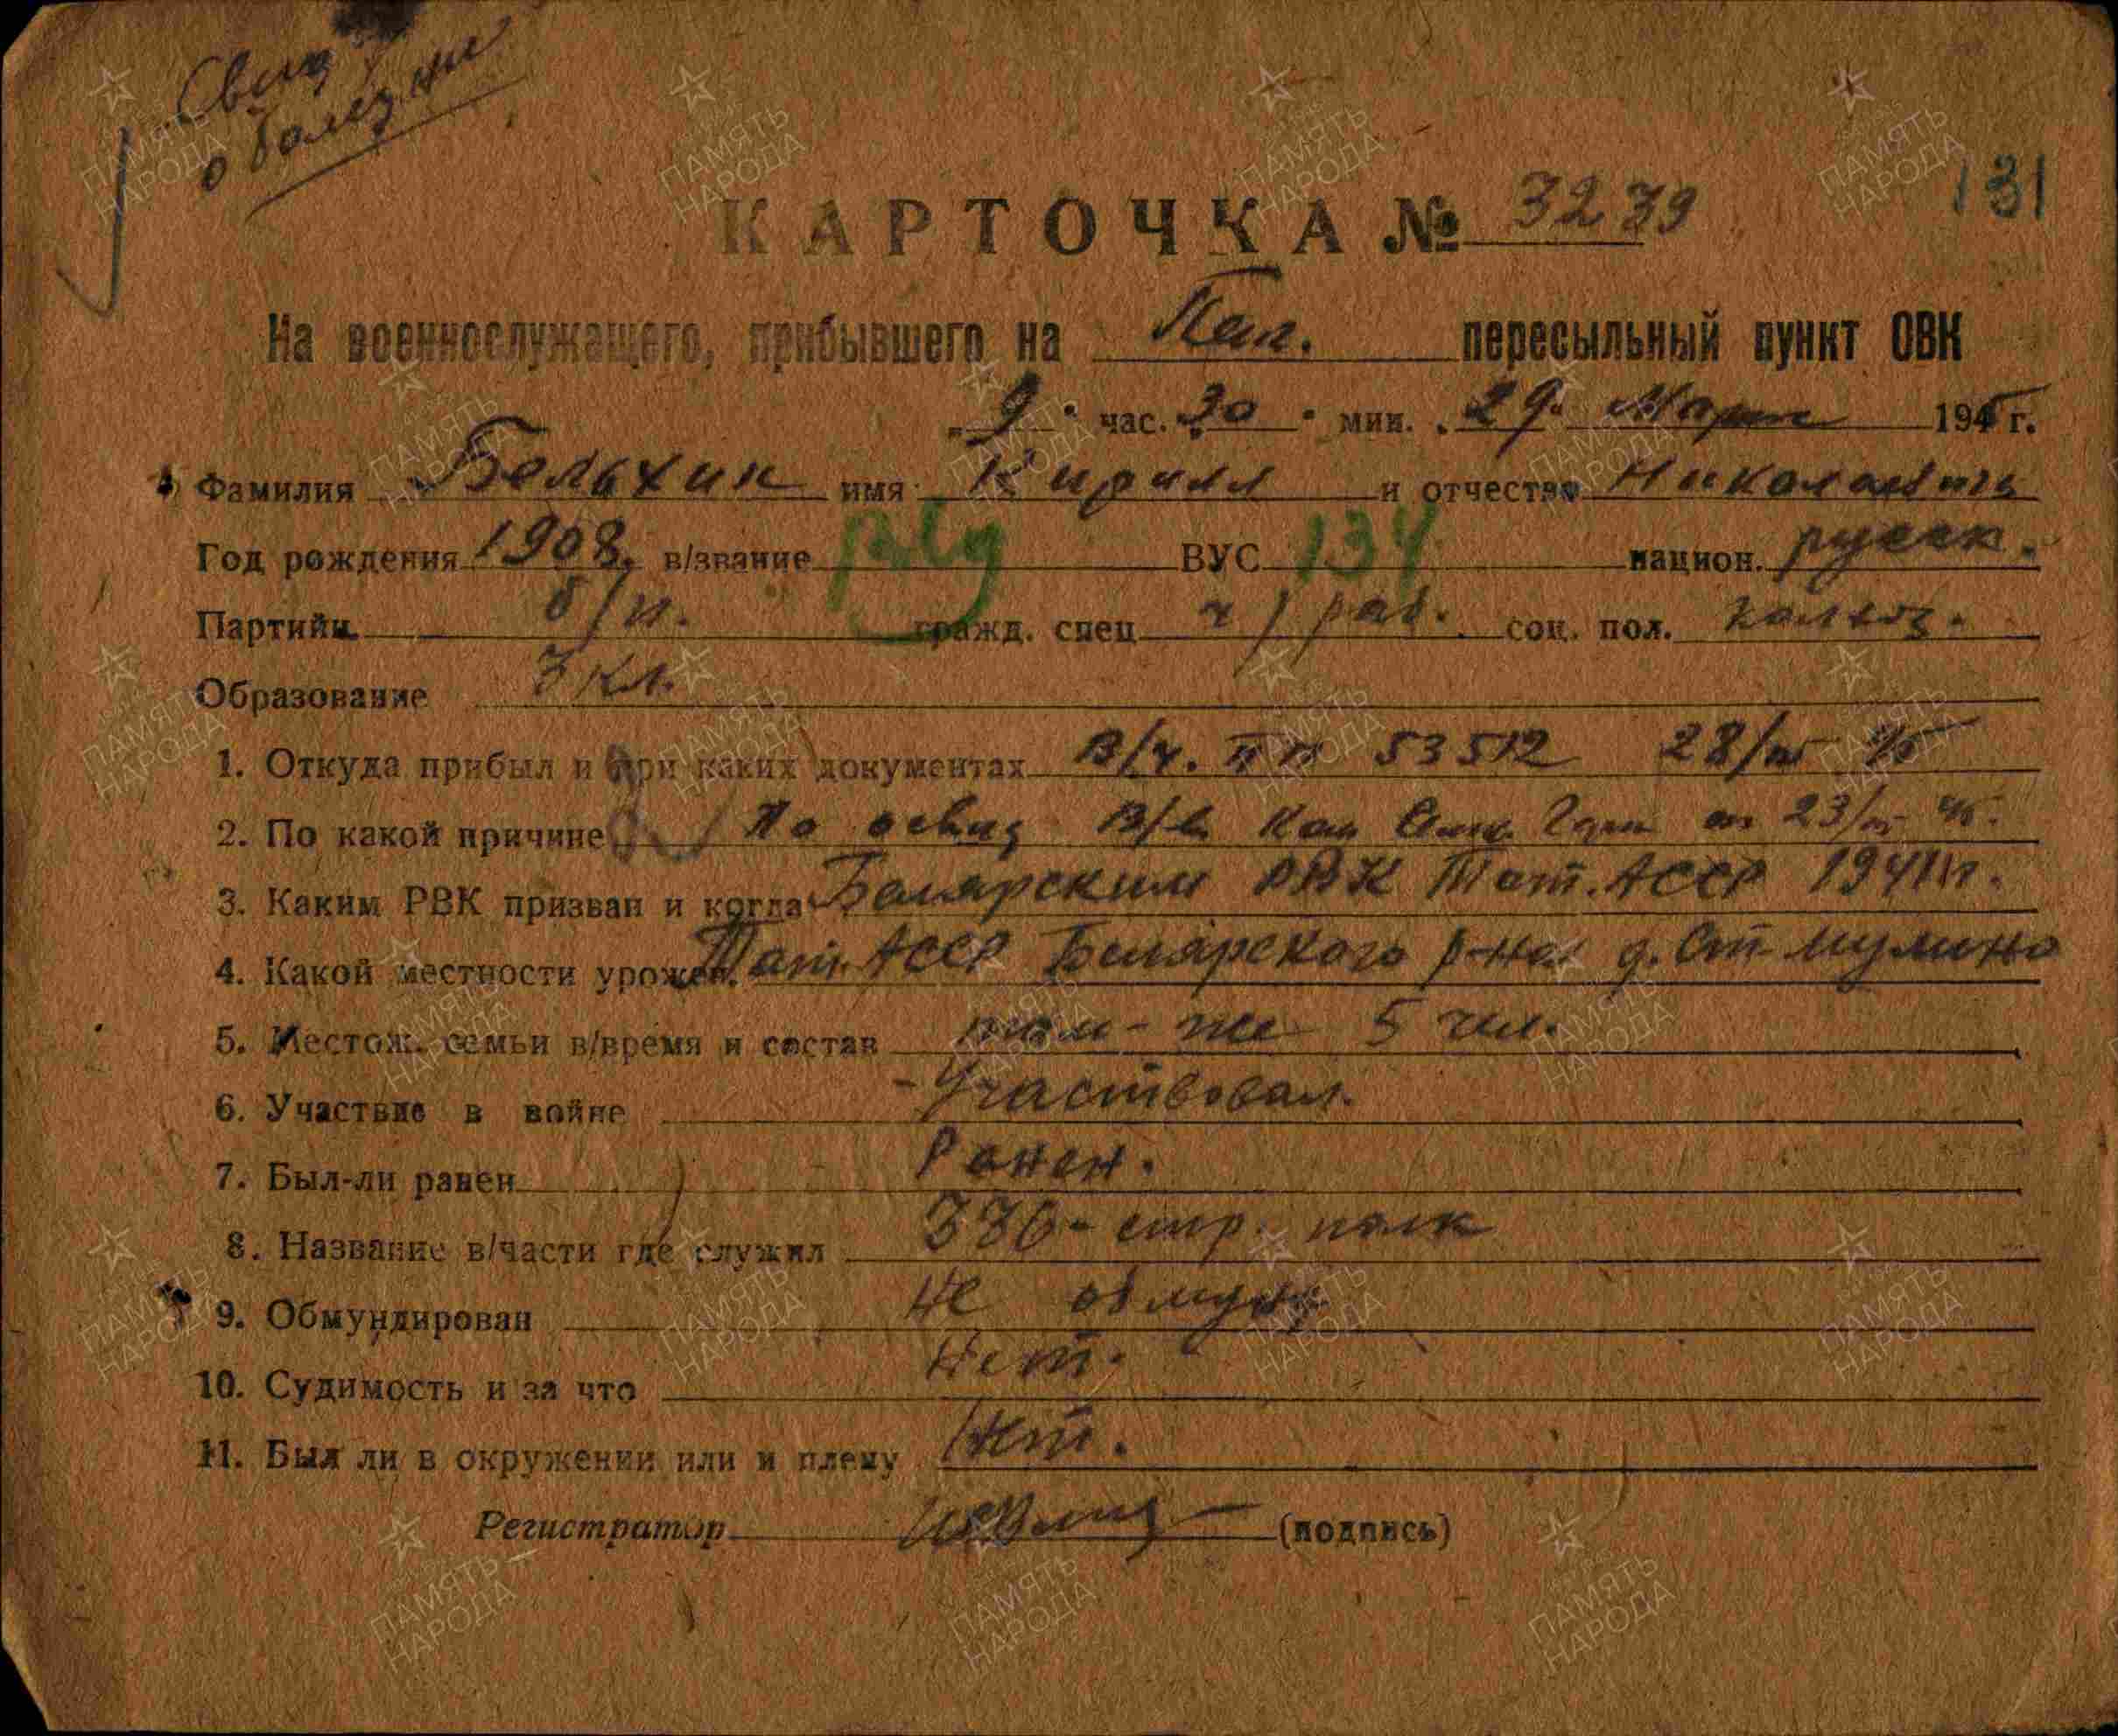 Свид
о болезни
131
КАРТОЧКА № 3239
На военнослужащего, прибывшего на пересыльный пункт ОВК
„9" час. 30 " мин. „29" Март 1945 г.
Фамилия Бельхин имя Кирилл и отчество Николаевич
Год рождения 1908. в/звание ряд ВУС 134 национ. русск.
Партийн. б/п. гражд. спец ч/раб. соц. пол. колхоз.
Образование 3 кл.
1. Откуда прибыл и при каких документах В/ч. пп 53512 28/III 45
2. По какой причине По освид В/в Ком Гарн от 23/III 45.
3. Каким РВК призван и когда Билярским РВК Тат. АССР 1941 г.
4. Какой местности урожен. Тат. АССР Билярского р-на д. Ст-Мумино
5. Местож. семьи в/время и состав там-же 5 чел.
6. Участвие в войне Участвовал.
7. Был-ли ранен Ранен.
8. Название в/части где служил 336-стр. полк
9. Обмундирован Не обмунд
10. Судимость и за что Нет.
11. Был ли в окружении или и плену Нет.
Регистратор (подпись)
ПАМЯТЬ НАРОДА